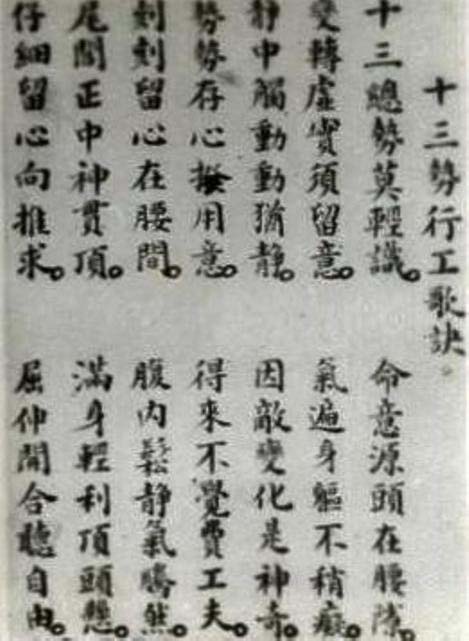 十三勢行工歌訣
十三總勢莫輕識。 命意源頭在腰隙。
變轉虛實須留意。 氣遍身軀不稍癡。
静中觸動動猶静。 因敵變化是神奇。
勢勢存心揆用意。 得來不覺費工夫。
刻刻留心在腰間。 腹内鬆静氣騰然。
尾閭正中神貫頂。 滿身輕利頂頭懸。
仔細留心向推求。 屈伸開合聽自由。